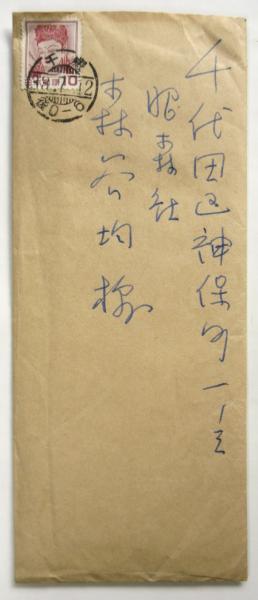 千代田区神保町一ノ三
昭森社
森谷均様